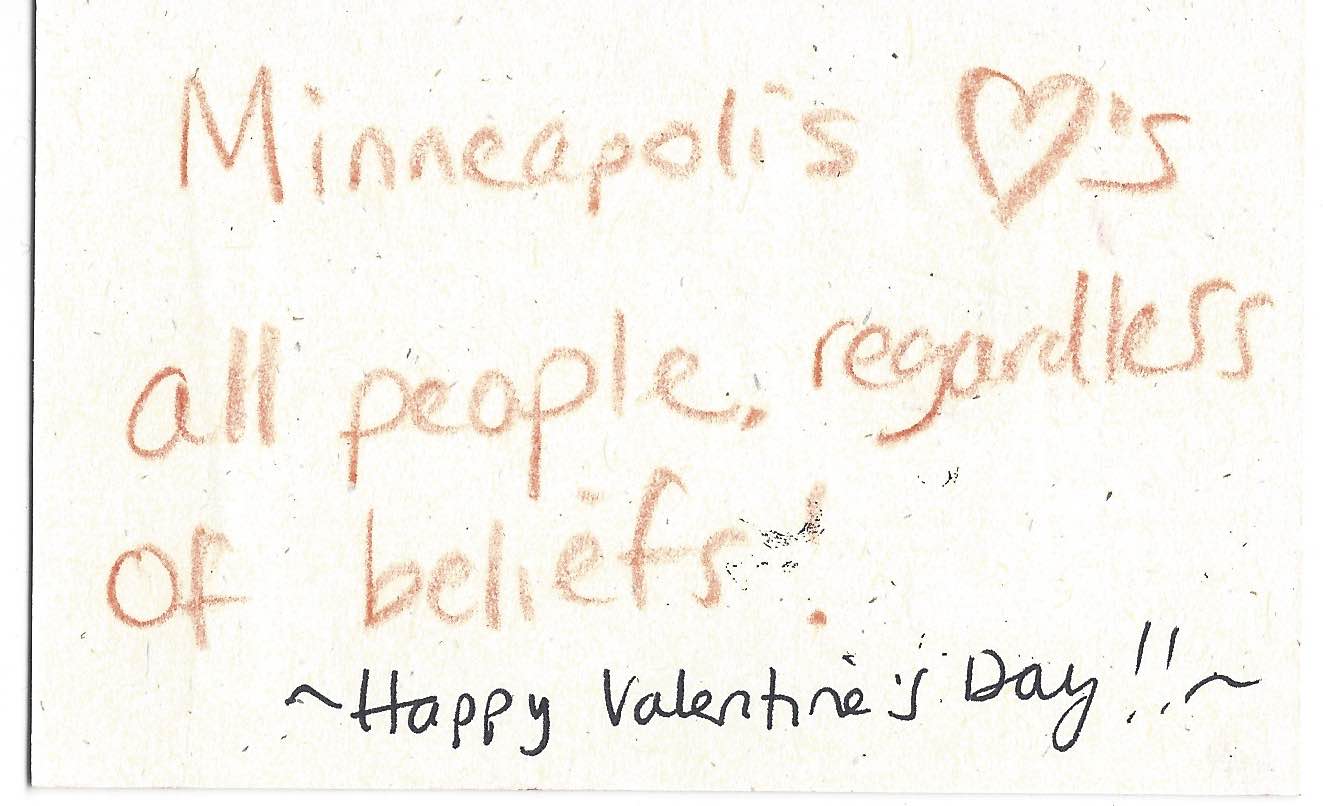 Minneapolis ♡'s
all people, regardless
of beliefs!
~Happy Valentine's Day!!~